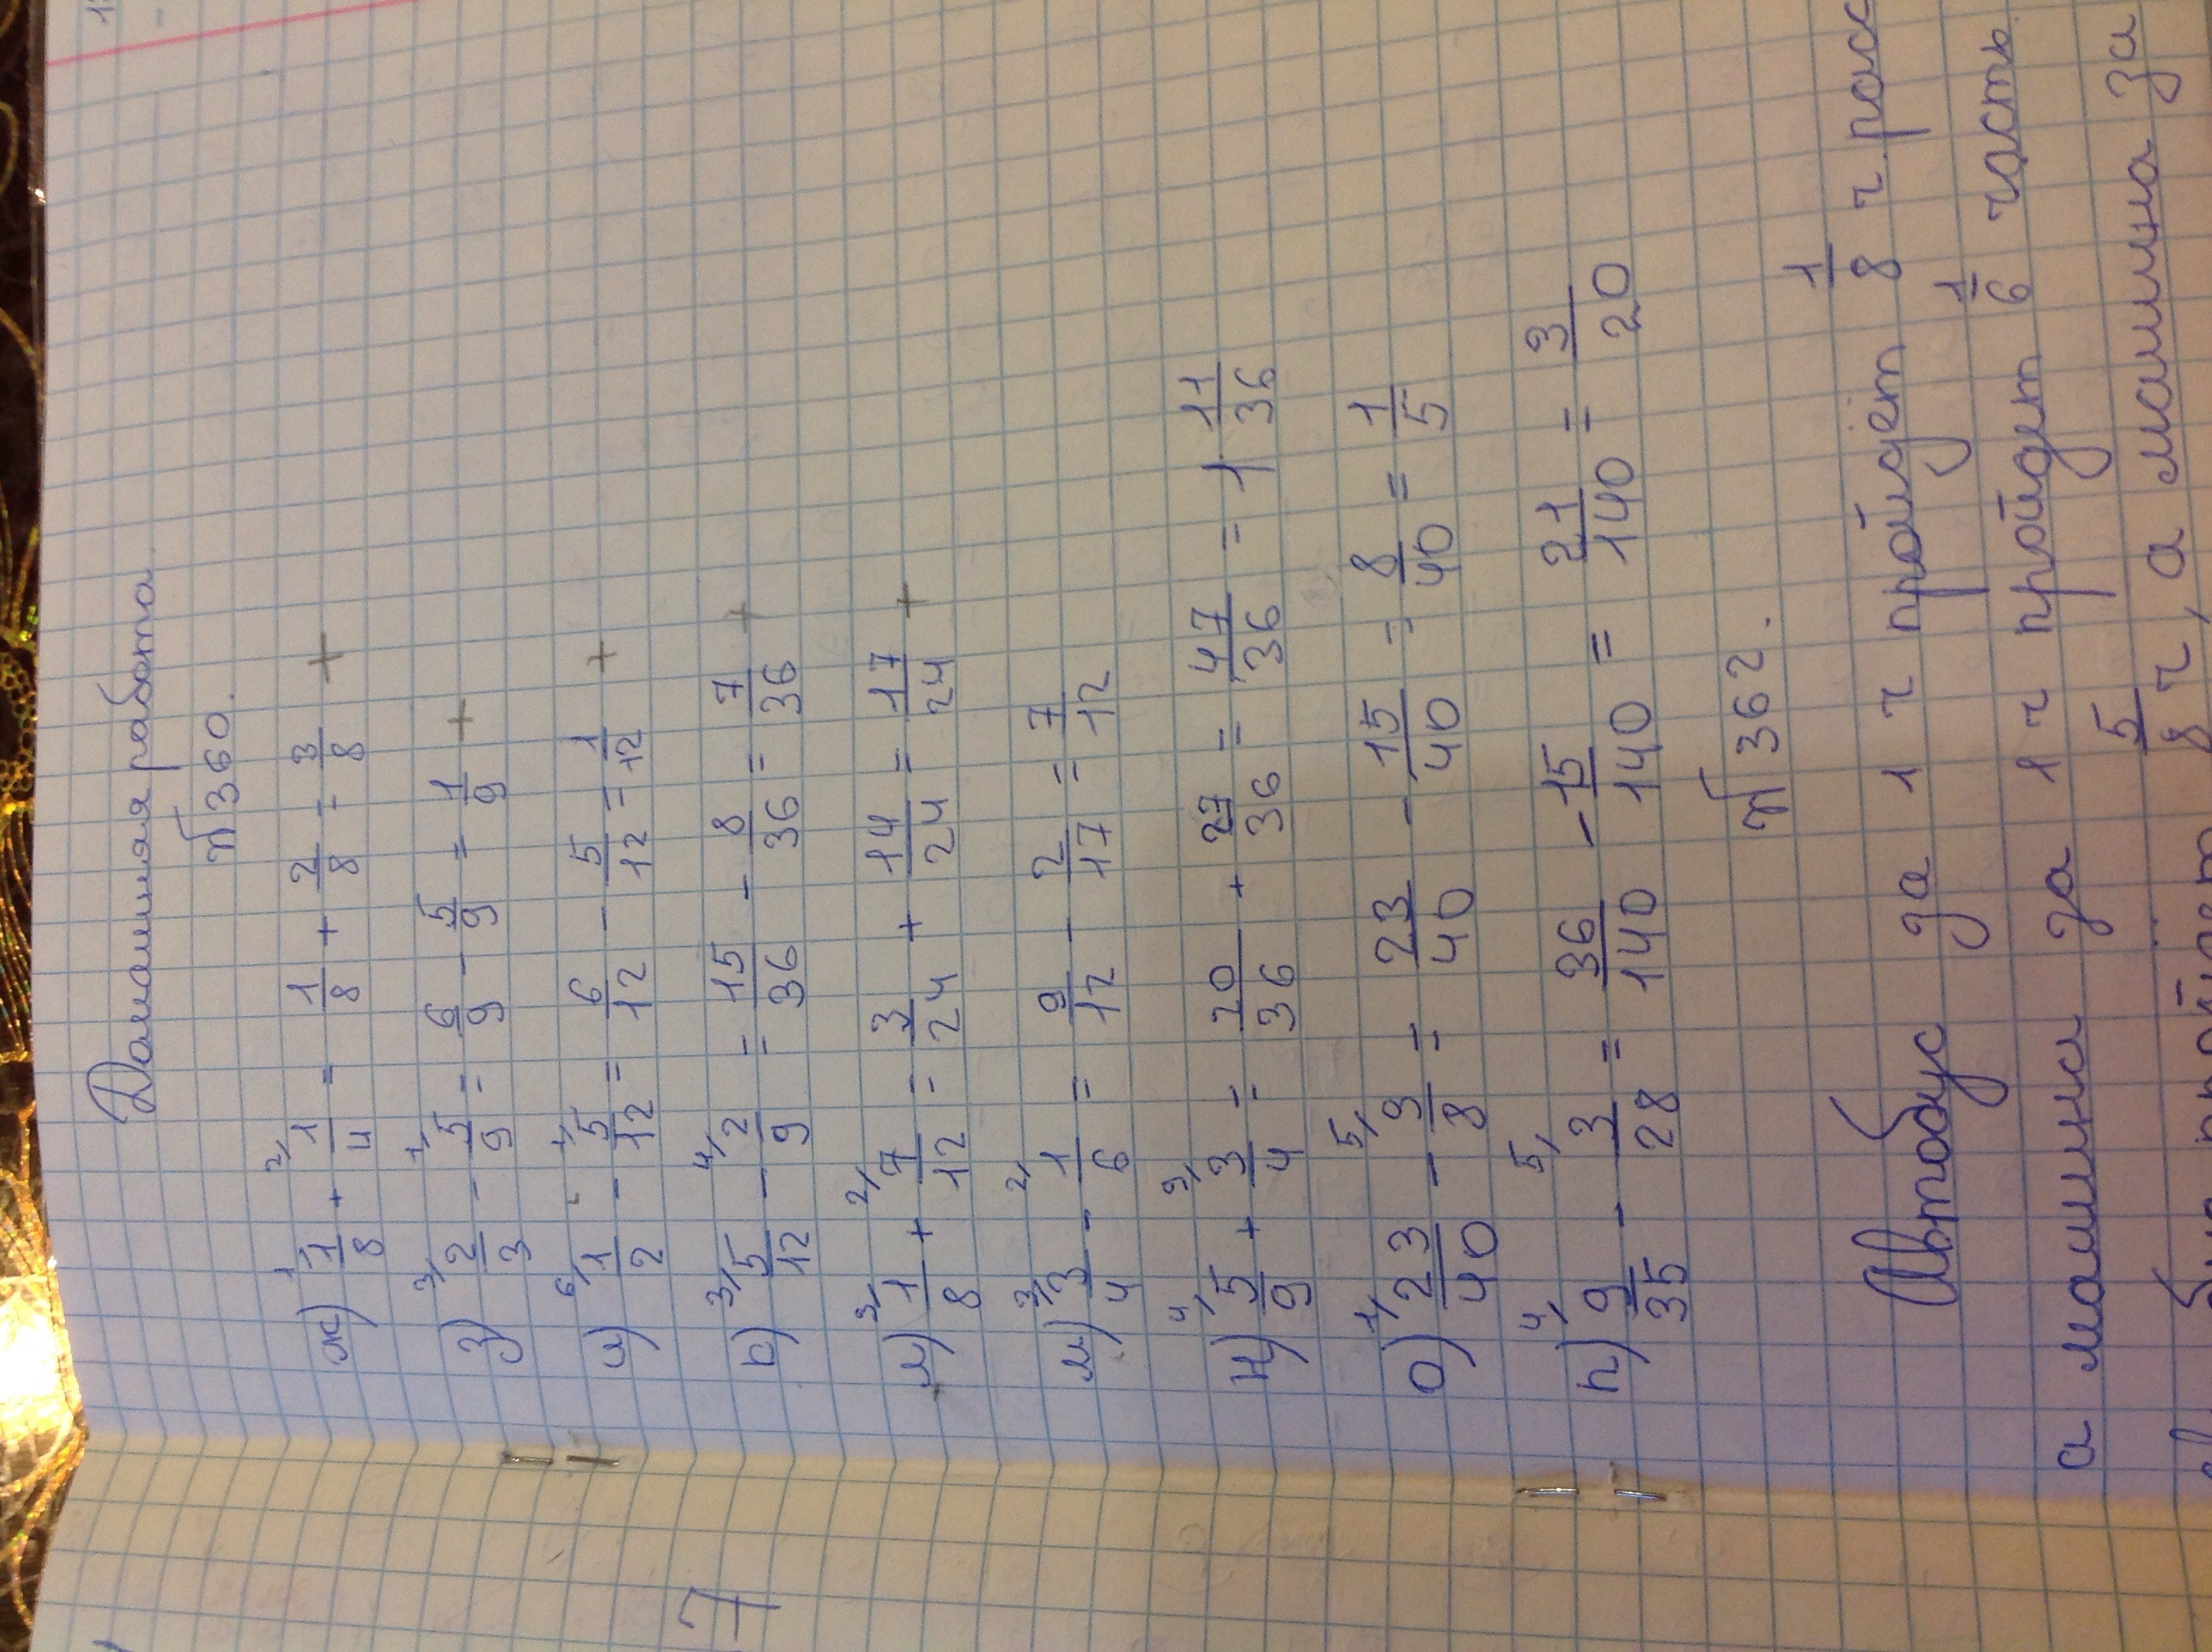 Домашняя работа.
№360.
ж) 1/8 + 2/ 1/4 = 1/8 + 2/8 = 3/8 +
з) 3/ 2/3 - 1/ 5/9 = 6/9 - 5/9 = 1/9 +
и) 6/ 1/2 - 1/ 5/12 = 6/12 - 5/12 = 1/12 +
к) 3/ 5/12 - 4/ 2/9 = 15/36 - 8/36 = 7/36 +
л) 3/ 1/8 + 2/ 7/12 = 3/24 + 14/24 = 17/24 +
м) 3/ 3/4 - 2/ 1/6 = 9/12 - 2/17 = 7/12
н) 4/ 5/9 + 9/ 3/4 = 20/36 + 27/36 = 47/36 = 1 11/36
о) 1/ 23/40 - 5/ 3/8 = 23/40 - 15/40 = 8/40 = 1/5
п) 4/ 9/35 - 5/ 3/28 = 36/140 - 15/140 = 21/140 = 3/20
№362.
Автобус за 1 ч пройдёт 1/8 ч. расс
а машина за 1 ч пройдет 1/6 часть
5/8 ч, а машина за